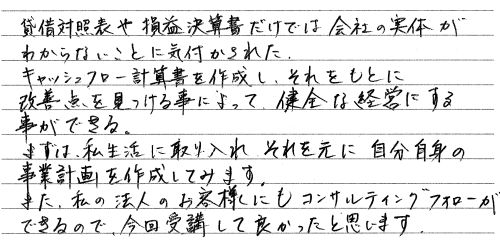 貸借対照表や損益決算書だけでは会社の実体が
わからないことに気付かされた。
キャッシュフロー計算書を作成し、それをもとに
改善点を見つける事によって、健全な経営にする
事ができる。
まずは、私生活に取り入れ それを元に 自分自身の
事業計画を作成してみます。
また、私の法人のお客様にもコンサルティングフォローが
できるので、今回受講して良かったと思います。